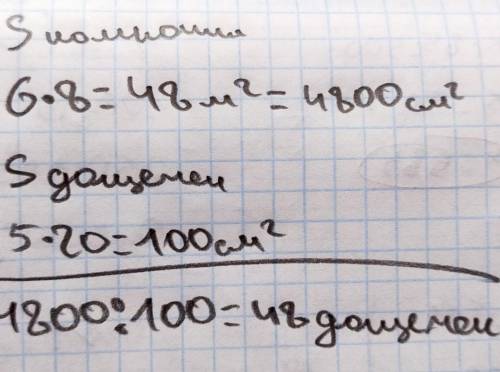 S комнаты
6·8=48м²=4800см²
S дощечек
5·20=100см²
4800:100=48дощечек